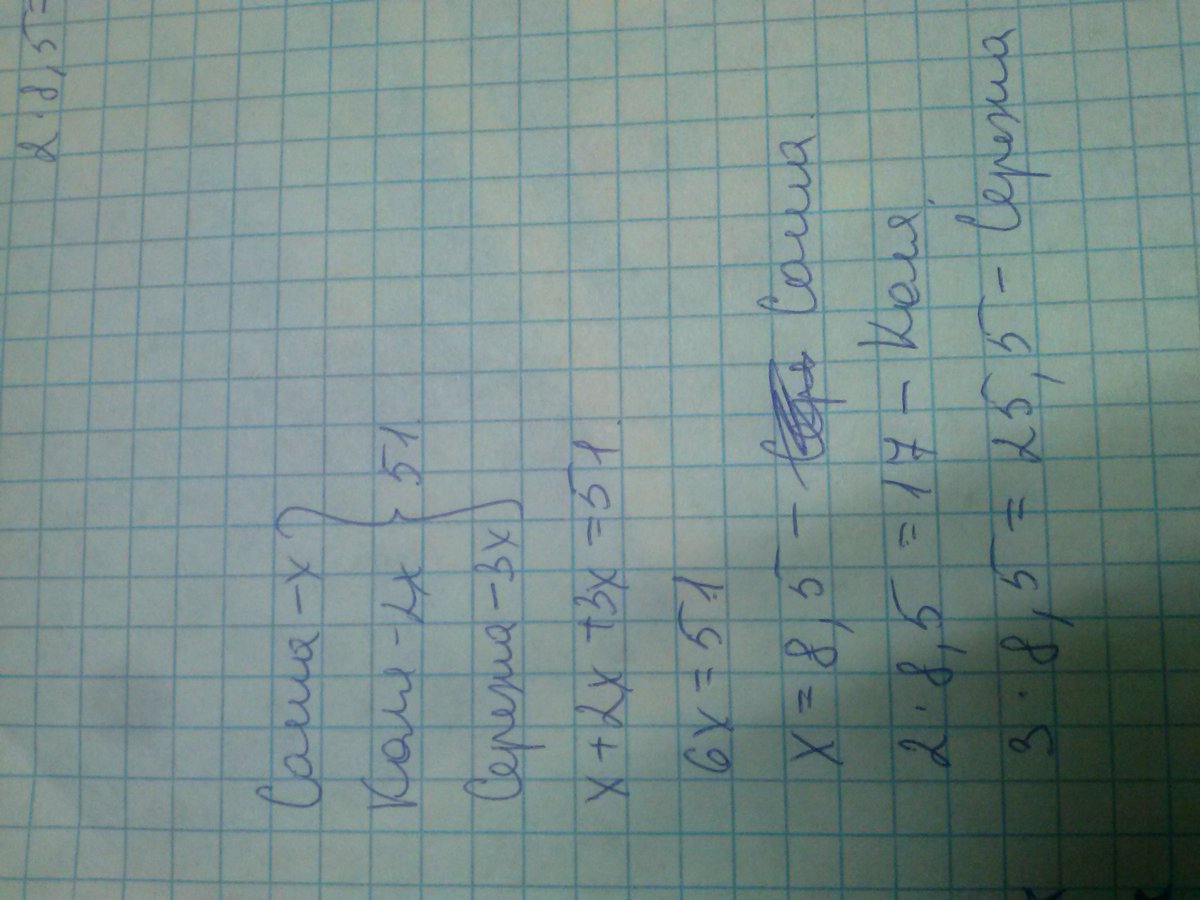 2·8,5=
Саша – x
Коля – 2x } 51.
Сережа – 3x
x + 2x + 3x = 51.
6x = 51
x = 8,5 – Саша.
2·8,5 = 17 – Коля.
3·8,5 = 25,5 – Сережа